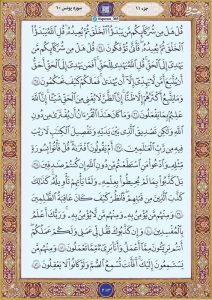 جزء ۱۱
سورة یونس ۱۰
قُلْ هَلْ مِن شُرَكَائِكُم مَّن يَبْدَؤُا الْخَلْقَ ثُمَّ يُعِيدُهُ قُلِ اللَّهُ يَبْدَؤُا
الْخَلْقَ ثُمَّ يُعِيدُهُ فَأَنَّىٰ تُؤْفَكُونَ ٣٤ قُلْ هَلْ مِن شُرَكَائِكُم مَّن
يَهْدِي إِلَى الْحَقِّ قُلِ اللَّهُ يَهْدِي لِلْحَقِّ أَفَمَن يَهْدِي إِلَى الْحَقِّ
أَحَقُّ أَن يُتَّبَعَ أَمَّن لَّا يَهِدِّي إِلَّا أَن يُهْدَىٰ فَمَا لَكُمْ كَيْفَ تَحْكُمُونَ ٣٥
وَمَا يَتَّبِعُ أَكْثَرُهُمْ إِلَّا ظَنًّا إِنَّ الظَّنَّ لَا يُغْنِي مِنَ الْحَقِّ شَيْئًا إِنَّ اللَّهَ
عَلِيمٌ بِمَا يَفْعَلُونَ ٣٦ وَمَا كَانَ هَٰذَا الْقُرْآنُ أَن يُفْتَرَىٰ مِن دُونِ
اللَّهِ وَلَٰكِن تَصْدِيقَ الَّذِي بَيْنَ يَدَيْهِ وَتَفْصِيلَ الْكِتَابِ لَا رَيْبَ
فِيهِ مِن رَّبِّ الْعَالَمِينَ ٣٧ أَمْ يَقُولُونَ افْتَرَاهُ قُلْ فَأْتُوا بِسُورَةٍ
مِّثْلِهِ وَادْعُوا مَنِ اسْتَطَعْتُم مِّن دُونِ اللَّهِ إِن كُنتُمْ صَادِقِينَ ٣٨
بَلْ كَذَّبُوا بِمَا لَمْ يُحِيطُوا بِعِلْمِهِ وَلَمَّا يَأْتِهِمْ تَأْوِيلُهُ كَذَٰلِكَ
كَذَّبَ الَّذِينَ مِن قَبْلِهِمْ فَانظُرْ كَيْفَ كَانَ عَاقِبَةُ الظَّالِمِينَ ٣٩
وَمِنْهُم مَّن يُؤْمِنُ بِهِ وَمِنْهُم مَّن لَّا يُؤْمِنُ بِهِ وَرَبُّكَ أَعْلَمُ
بِالْمُفْسِدِينَ ٤٠ وَإِن كَذَّبُوكَ فَقُل لِّي عَمَلِي وَلَكُمْ عَمَلُكُمْ
أَنتُم بَرِيئُونَ مِمَّا أَعْمَلُ وَأَنَا بَرِيءٌ مِّمَّا تَعْمَلُونَ ٤١ وَمِنْهُم مَّن
يَسْتَمِعُونَ إِلَيْكَ أَفَأَنتَ تُسْمِعُ الصُّمَّ وَلَوْ كَانُوا لَا يَعْقِلُونَ ٤٢